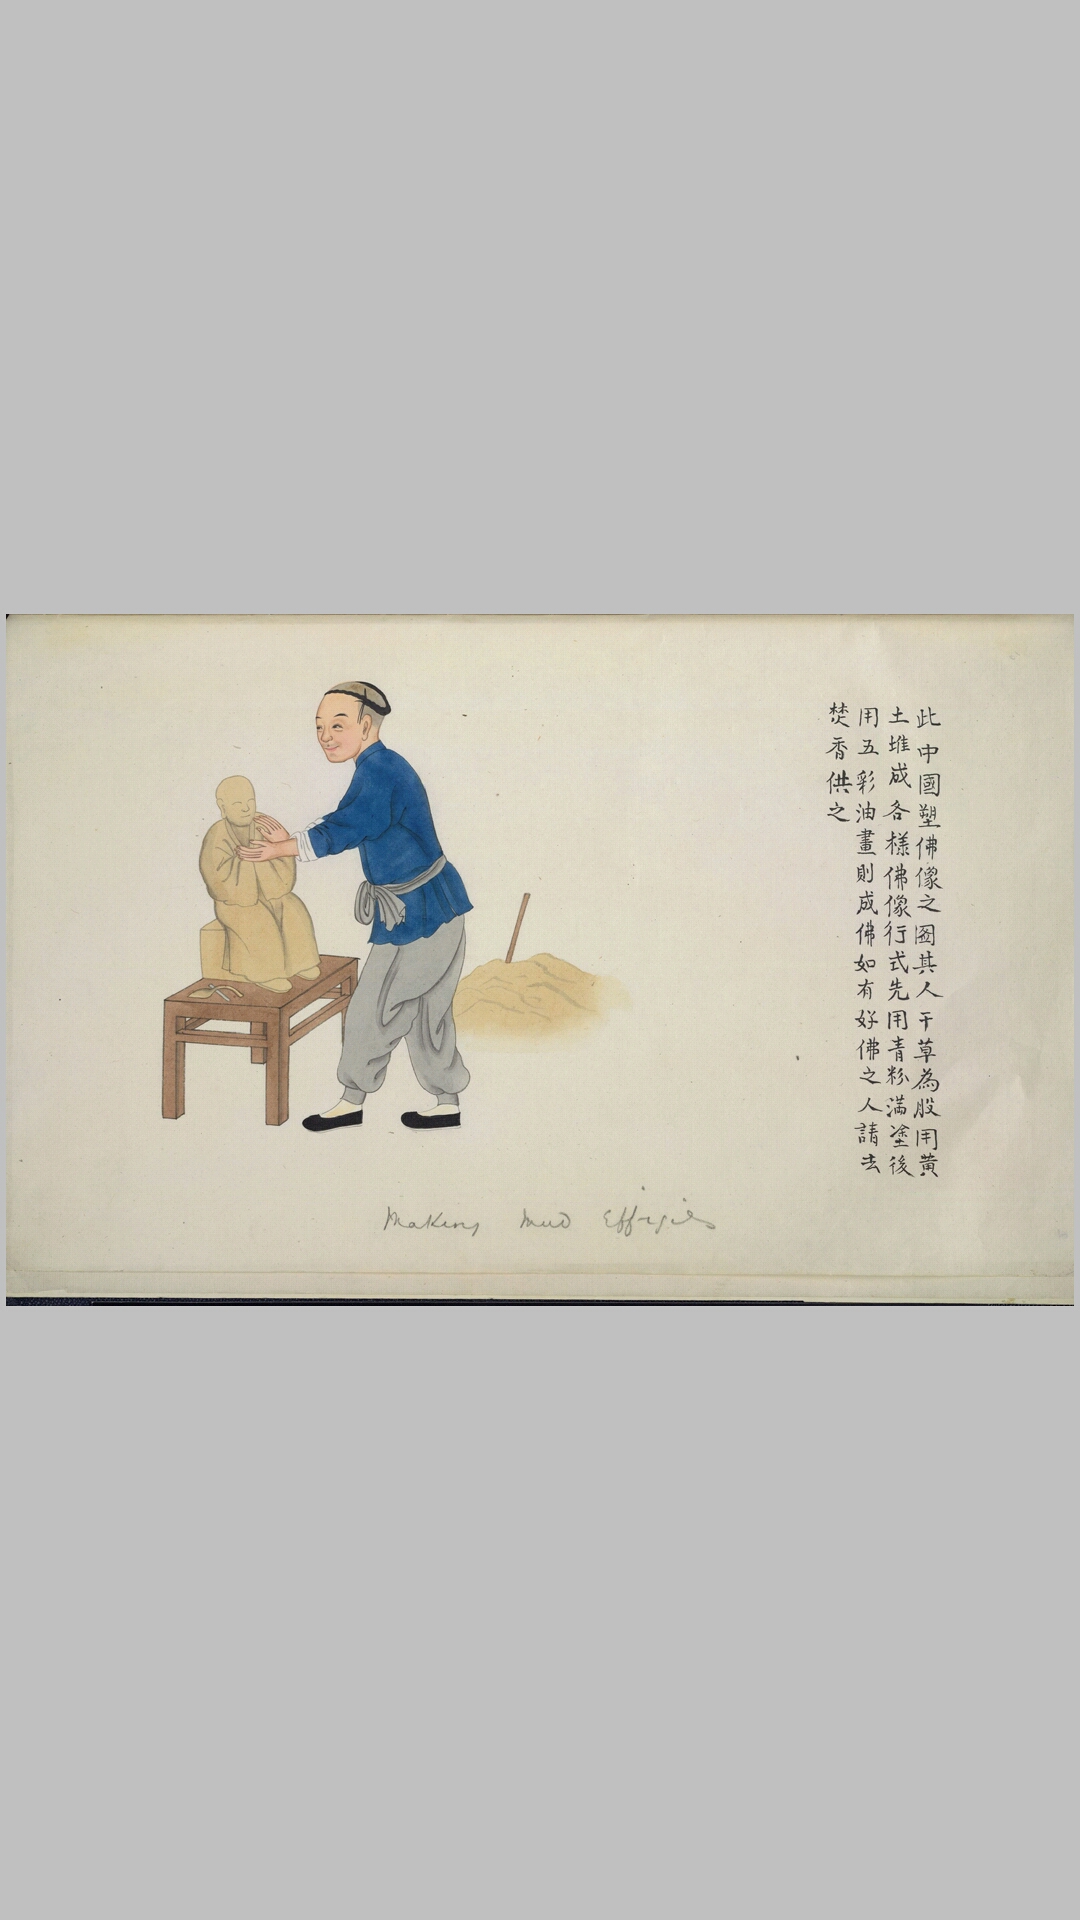 此中國塑佛像之圖其人干草為股用黃
土堆成各樣佛像行式先用青粉滿塗後
用五彩油畫則成佛如有好佛之人請去
焚香供之
Making Mud Effigies